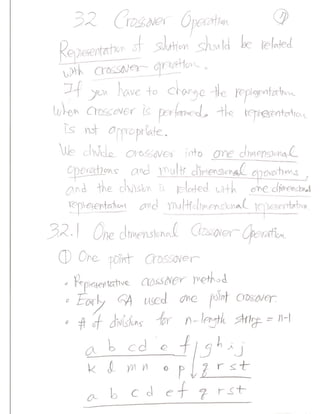 3.2 Crossover Operation ①
Representation of solution should be related
with crossover operation.
If you have to change the representation
when crossover is performed, the representation
is not appropriate.
We divide crossover into one dimensional
operations and multi dimensional operations,
and the division is related with one dimensional
representation and multidimensional representation
3.2.1 One dimensional Crossover Operation
① One point crossover
• Representative crossover method
• Early GA used one point crossover
• # of divisions for n-length string = n-1
a b c d e f g h i j
k l m n o p q r s t
a b c d e f q r s t